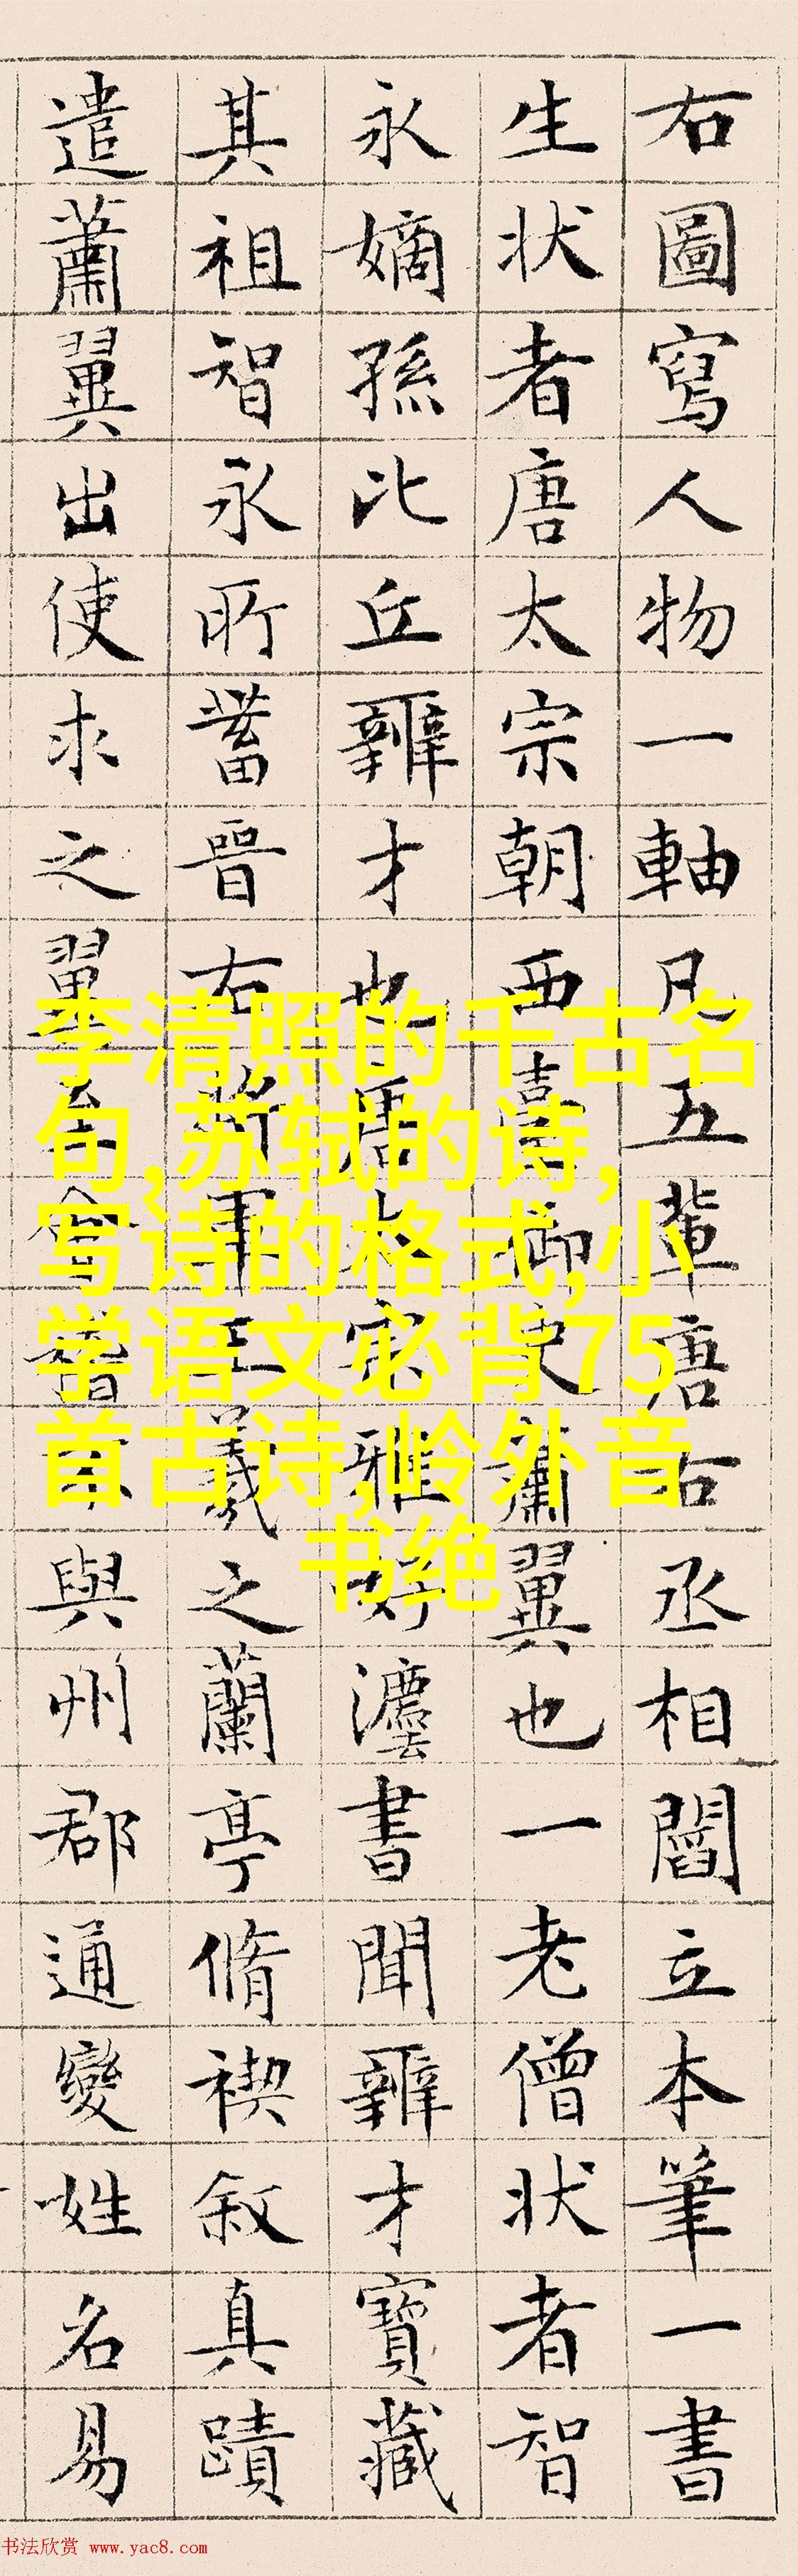 右圖寫人物一軸凡五輩唐右丞相閻立本筆一書
生狀者唐太宗朝西臺御史蕭翼也一老僧狀者智
永嫡孫比丘辯才也唐太宗雅好灋書聞辯才寶藏
其祖智永所蓄晉右將軍王羲之蘭亭脩禊叙真蹟
遣蕭翼出使求之翼至會稽不與州郡通變姓名易
李清照的千古名
句,苏轼的诗,
写诗的格式,小
学语文必背75
首古诗,岭外音
书绝
书法欣赏 www.yac8.com